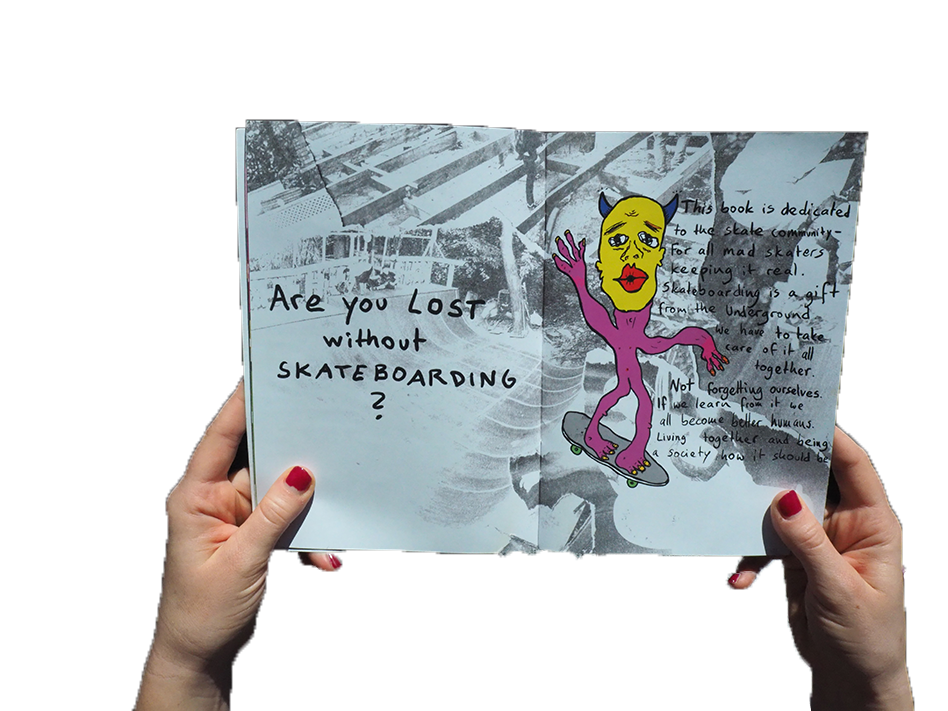 Are you LOST
without
SKATEBOARDING
?
This book is dedicated
to the skate community-
for all mad skaters
keeping it real.
Skateboarding is a gift
from the Underground
we have to take
care of it all
together.
Not forgetting ourselves.
If we learn from it we
all become better humans.
Living together and being
a society how it should be